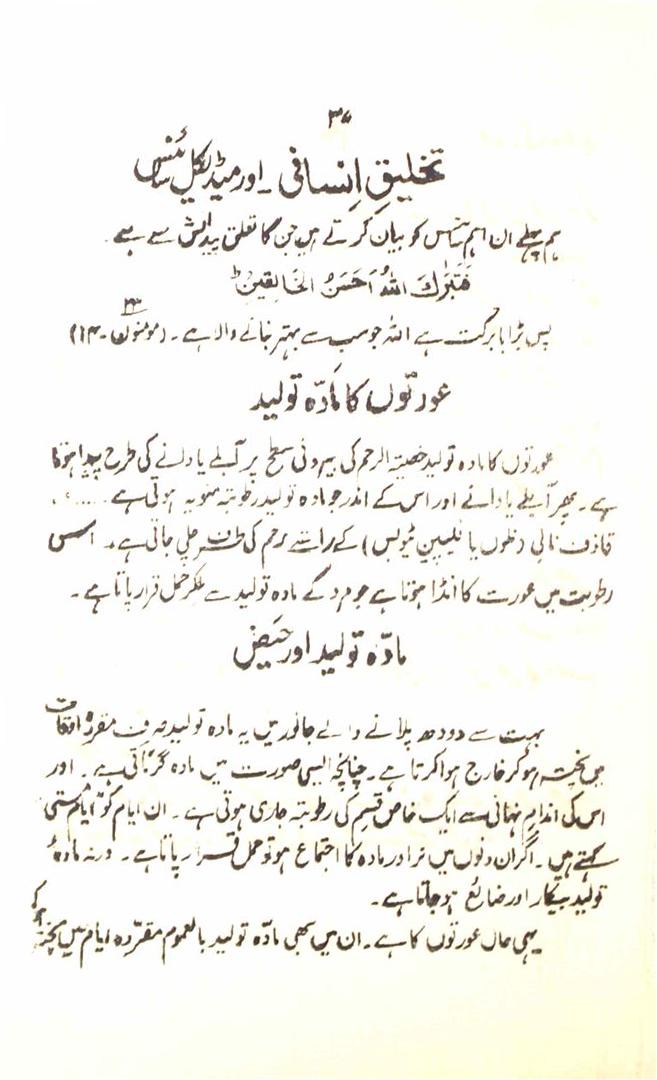 ۳۷
تخلیقِ انسانی - اور میڈیکل سائنس
ہم پہلے ان اہم کو بیان کرتے ہیں جن کا تعلق پیدائش سے ہے۔
فَتَبٰرَكَ اللّٰهُ اَحْسَنُ الْخَالِقِيْنَ ؕ
پس بڑا بابرکت ہے اللہ جو سب سے بہتر بنانے والا ہے۔ (مومنون - ۱۴)
۲۳
عورتوں کا مادّہ تولید
عورتوں کا مادہ تولید خصیتہ الرحم کی بیرونی سطح پر آبلے یا دانے کی طرح پیدا ہوتا
ہے۔ پھر آبلے یا دانے اور اس کے اندر جو مادہ تولید رطوبتہ منویہ ہوتی ہے .....،
قاذف نالی (نلوں یا فلیپین ٹیوبس) کے راستے رحم کی طرف چلی جاتی ہے۔ اس
رطوبت میں عورت کا انڈا ہوتا ہے جو مرد کے مادہ تولید سے ملکر حمل قرار پاتا ہے۔
مادّہ تولید اور حیض
بہت سے دودھ پلانے والے جانور میں یہ مادہ تولید صرف مقررہ اوقات
میں پختہ ہو کر خارج ہوا کرتا ہے۔ چنانچہ ایسی صورت میں مادہ گرماتی ہے۔ اور
اس کی اندام نہانی سے ایک خاص قسم کی رطوبتہ جاری ہوتی ہے۔ ان ایام کو ایام مستی
کہتے ہیں۔ اگر ان دنوں میں نر اور مادہ کا اجتماع ہو تو حمل قرار پاتا ہے۔ ورنہ مادہٴ
تولید بیکار اور ضائع ہو جاتا ہے۔
یہی حال عورتوں کا ہے۔ ان میں بھی مادّہ تولید بالعموم مقررّہ ایام میں پختہ ہو کر